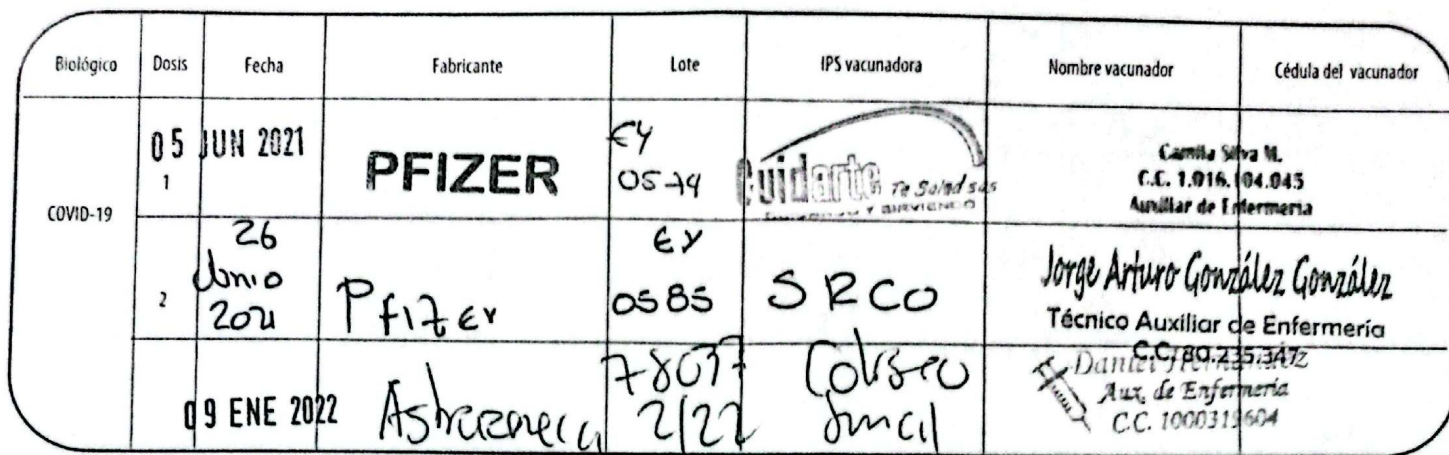 Biológico Dosis Fecha Fabricante Lote IPS vacunadora Nombre vacunador Cédula del vacunador
COVID-19
1 05 JUN 2021 PFIZER EY
0579
Cuidarte Tu Salud sas
Camila Silva M.
C.C. 1.016.104.045
Auxiliar de Enfermería
2 26
Junio
2021
Pfizer
EY
0585
SRCO
Jorge Arturo González González
Técnico Auxiliar de Enfermería
C.C. 80.235.347
09 ENE 2022 Astrazeneca
2/22
Coliseo
Daniel Hernández
Aux. de Enfermería
C.C. 1000319604